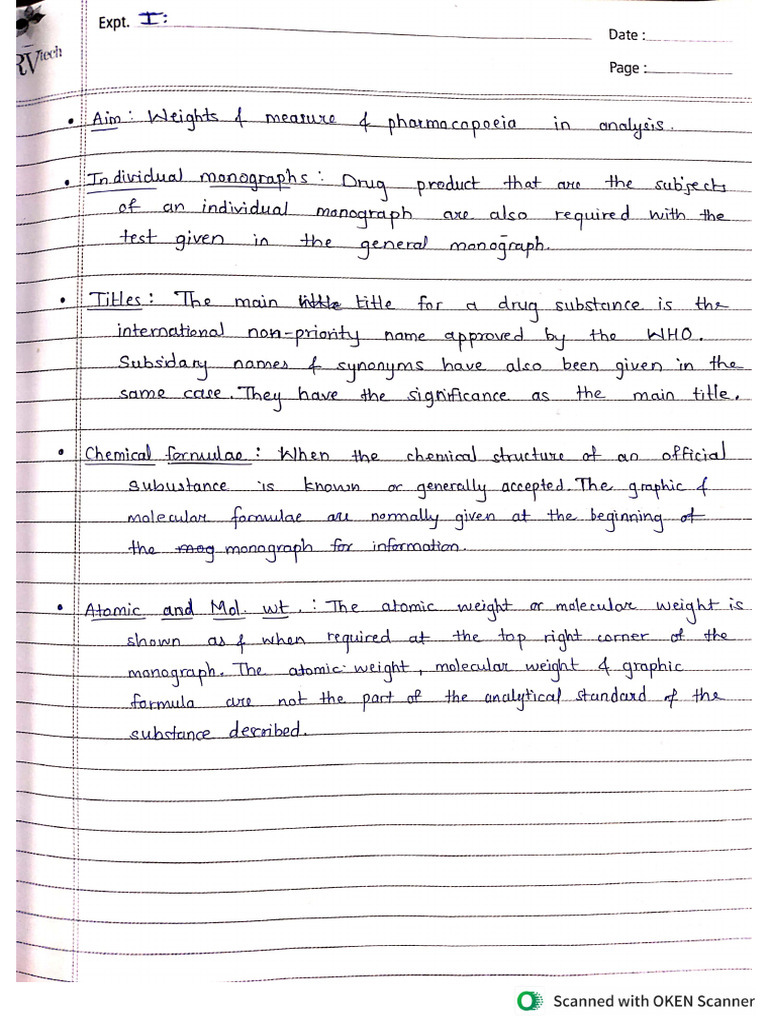 Expt. I:
Date :
Page :
RV tech
• Aim : Weights & measure & pharmacopoeia in analysis.
• Individual monographs : Drug product that are the subjects
of an individual monograph are also required with the
test given in the general monograph.
• Titles : The main title for a drug substance is the
international non-priority name approved by the WHO.
Subsidary names & synonyms have also been given in the
same case. They have the significance as the main title.
• Chemical formulae : When the chemical structure of an official
Subustance is known or generally accepted. The graphic &
molecular formulae are normally given at the beginning of
the mog monograph for information.
• Atomic and Mol. wt . : The atomic weight or molecular weight is
shown as & when required at the top right corner of the
monograph. The atomic weight, molecular weight & graphic
formula are not the part of the analytical standard of the
substance described.
Scanned with OKEN Scanner